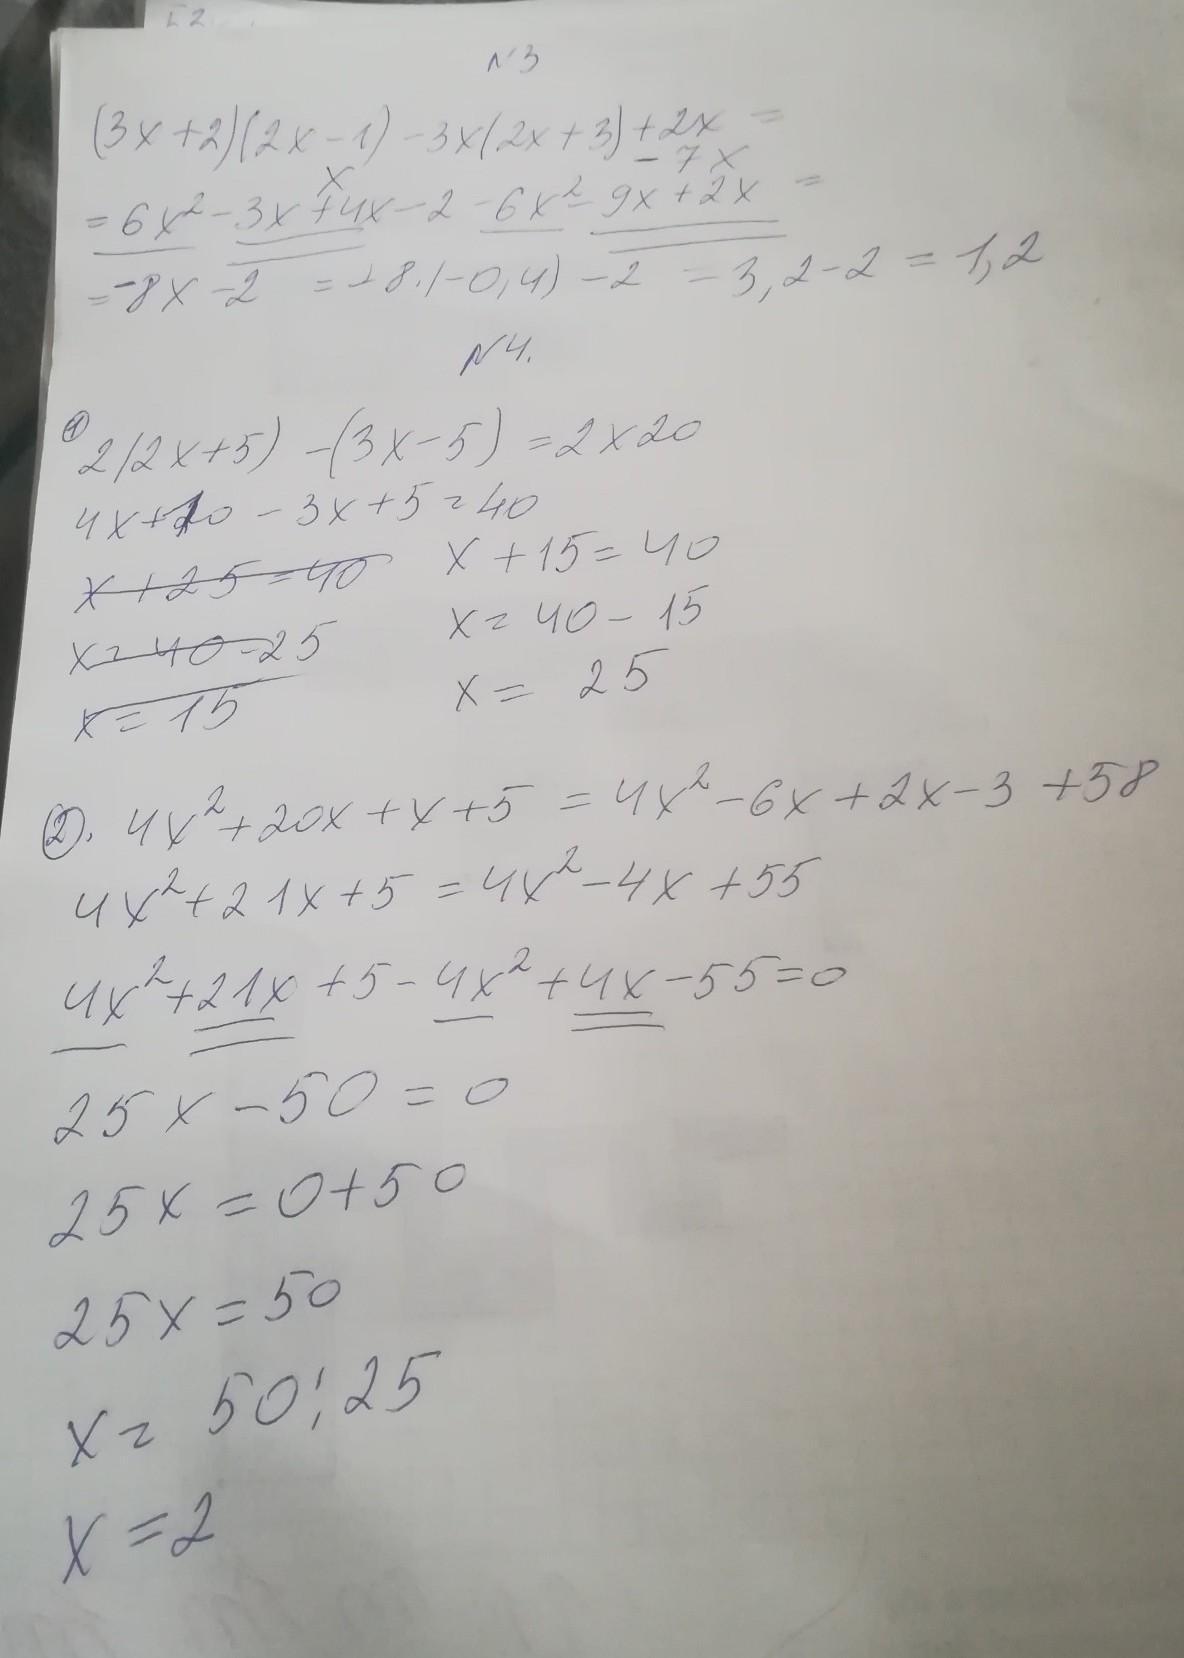 №3
(3x+2)(2x-1)-3x(2x+3)+2x=
x -7x
=6x²-3x+4x-2-6x²-9x+2x=
=-8x-2 =-8·(-0,4)-2 =3,2-2=1,2
№4.
① 2(2x+5)-(3x-5)=2x20
4x+10-3x+5=40
x+25=40 x+15=40
x=40-25 x=40-15
x=15 x= 25
②. 4x²+20x+x+5=4x²-6x+2x-3+58
4x²+21x+5=4x²-4x+55
4x²+21x+5-4x²+4x-55=0
25x-50=0
25x=0+50
25x=50
x=50:25
x=2